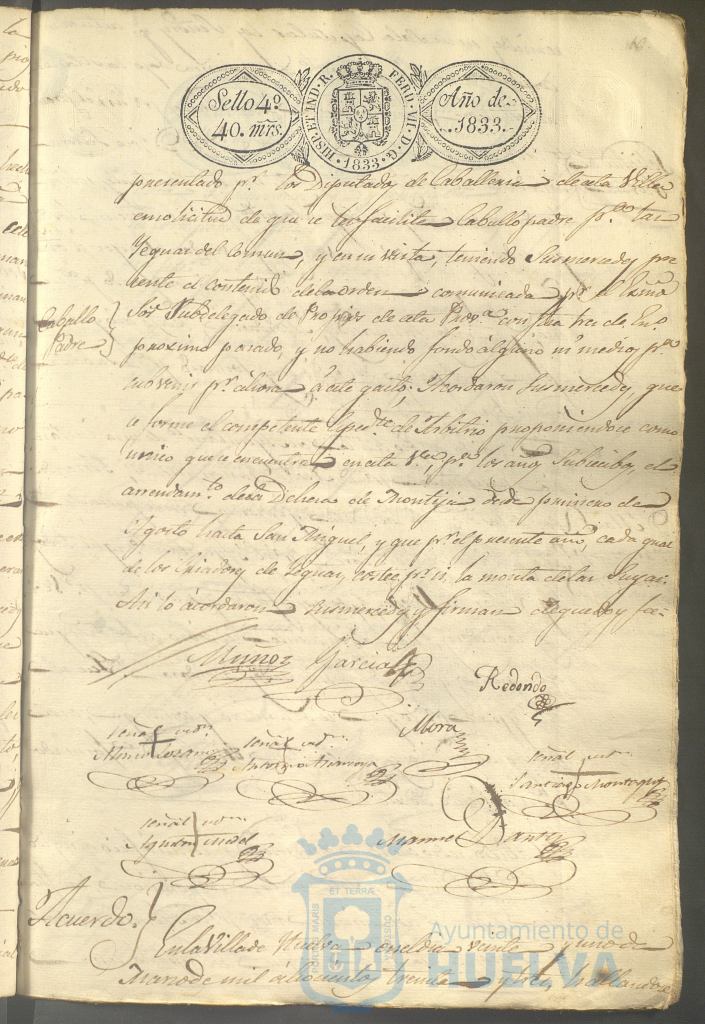 Sello 4º
40. mrs.
HISP. ET IND. R. FERD. VII. D. G.
·1833·
Año de
1833.
presentado pr. los Diputados de Caballeria de esta Villa
en solicitud de que se les facilite Caballo padre pa. las
Yeguas del Comun, y en su vista, teniendo Sus mercedes pre
sente el contenido de la orden comunicada pr. el Exmo
Sor. Subdelegado de Propios de esta Prova. con fha tres de En.
proximo pasado, y no habiendo fondo alguno ni medios pa.
subvenir pr. ahora a este gasto; Acordaron Sus mercedes que
se forme el competente Espedte. de Arbitrio proponiendose como
unico que se encuentra en esta Va., pa. los años Subcesibos, el
arrendamto. de la Dehesa de Montija desde primero de
Agosto hasta San Miguel, y que pr. el presente año, cada qual
de los Criadores de Yeguas, costee pr. si la monta de las Suyas.
Asi lo acordaron Sus mercedes y firman de que doy fee.
Caballo
Padre
Muñoz Garcia
Redondo
Mora
señal de
señal de
señal de
Santiago
señal de
Manuel
Acuerdo.
En la Villa de Huelva en el dia veinte y uno de
Marzo de mil ochocientos treinta y tres, hallandose
ET TERRÆ
MARIS
Ayuntamiento de
HUELVA